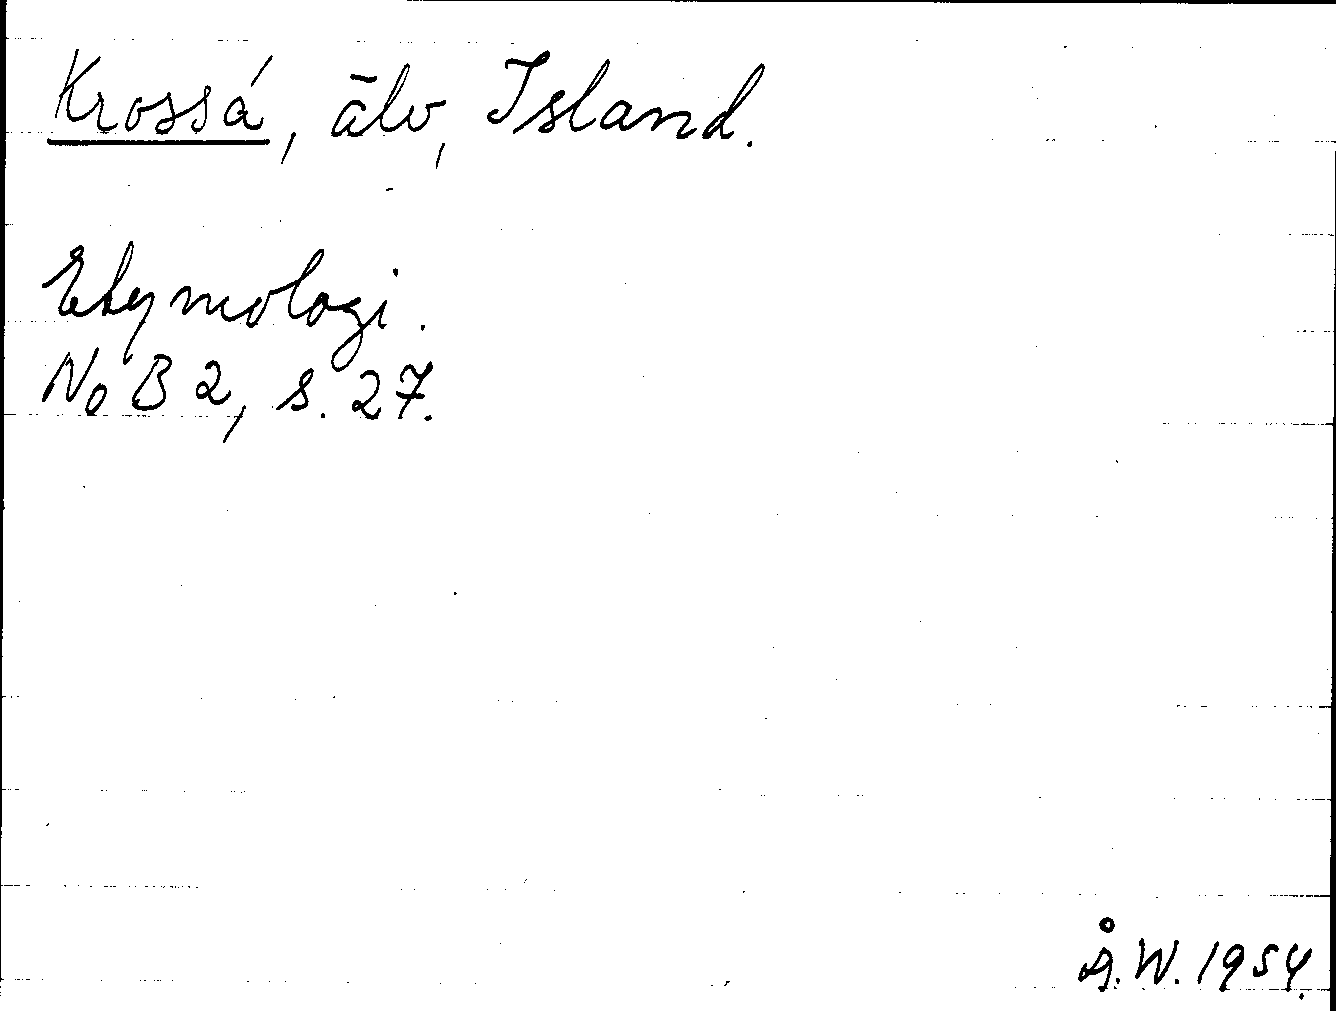 Krossá, älv, Island.
Etymologi.
NoB 2, s. 27.
Å.W. 1954.